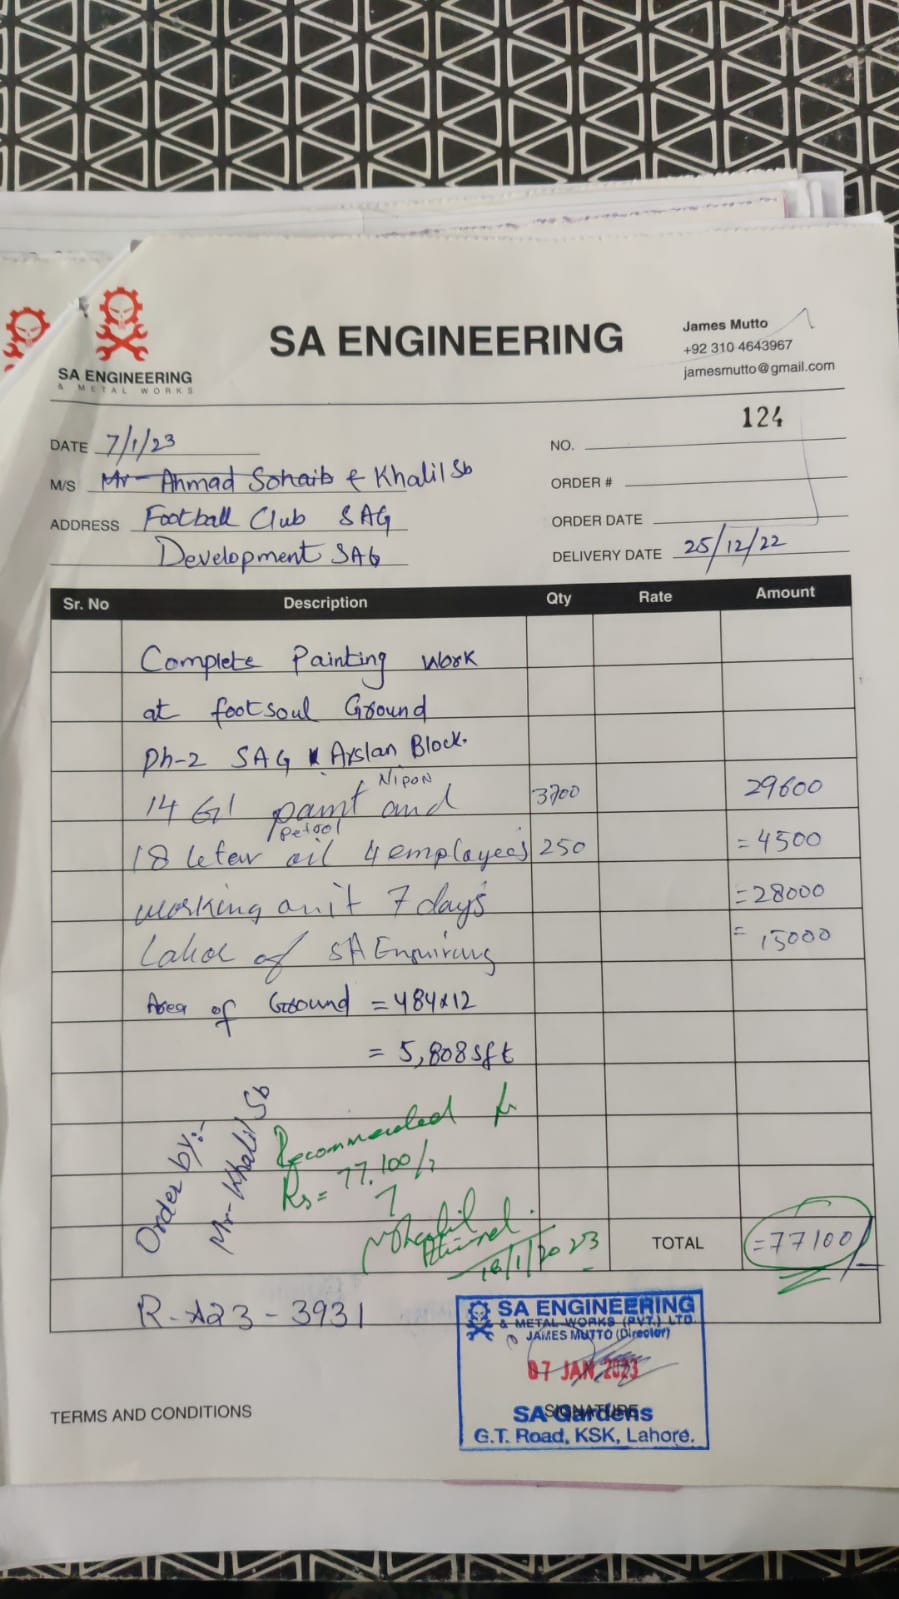 SA ENGINEERING
& METAL WORKS
SA ENGINEERING
James Mutto
+92 310 4643967
jamesmutto@gmail.com
124
DATE 7/1/23
NO.
M/S Mr Ahmad Sohaib & Khalil Sb
ORDER #
ADDRESS Football Club SAG
ORDER DATE
Development SAG
DELIVERY DATE 25/12/22
Sr. No Description Qty Rate Amount
Complete Painting Work
at footsoul Ground
Ph-2 SAG Arslan Block.
Nipon
14 Gl paint and 3700 29600
petrol
18 leter oil 4 employees 250 =4500
working onit 7 days =28000
Labor of SA Enquiring = 15000
Area of Ground = 484x12
= 5,808 Sft
Order by:-
Mr- Khalil Sb
Recommended
Rs= 77,100/
16/1/2023
TOTAL =77100/-
R-A23-3931
SA ENGINEERING
& METAL WORKS (PVT.) LTD.
JAMES MUTTO (Director)
07 JAN 2023
TERMS AND CONDITIONS
SIGNATURE
SA Gardens
G.T. Road, KSK, Lahore.